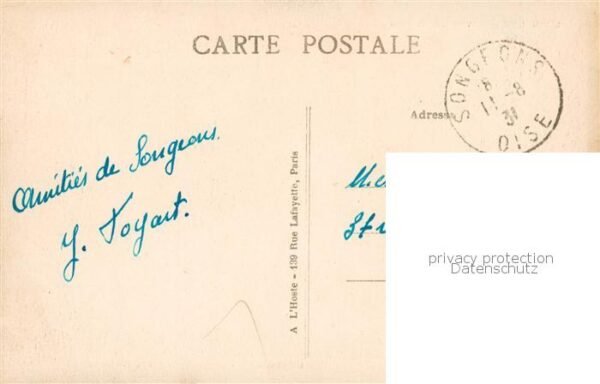 CARTE POSTALE
SONGEONS
8
11 -8
31
OISE
Adress
Amitiés de Songeons.
Y. Toyart.
A L'Hoste - 139 Rue Lafayette, Paris
privacy protection
Datenschutz